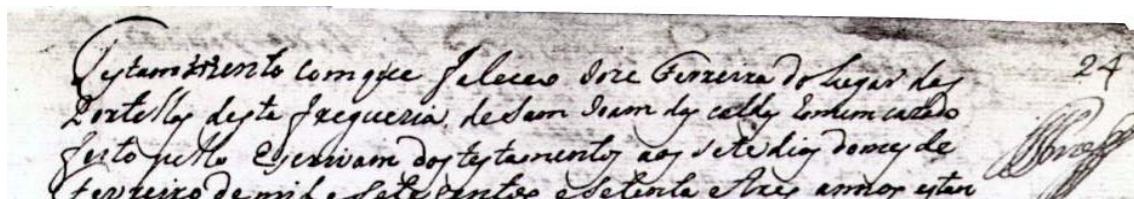 Testamento com que faleceo Jose Ferreira do lugar das 24
Portellas desta freguezia de Sam Joam das caldas homem cazado
feito pello Escrivam dos testamentos aos sete dias do mes de
Fevreiro de mil e sete centos e setenta e tres annos estan